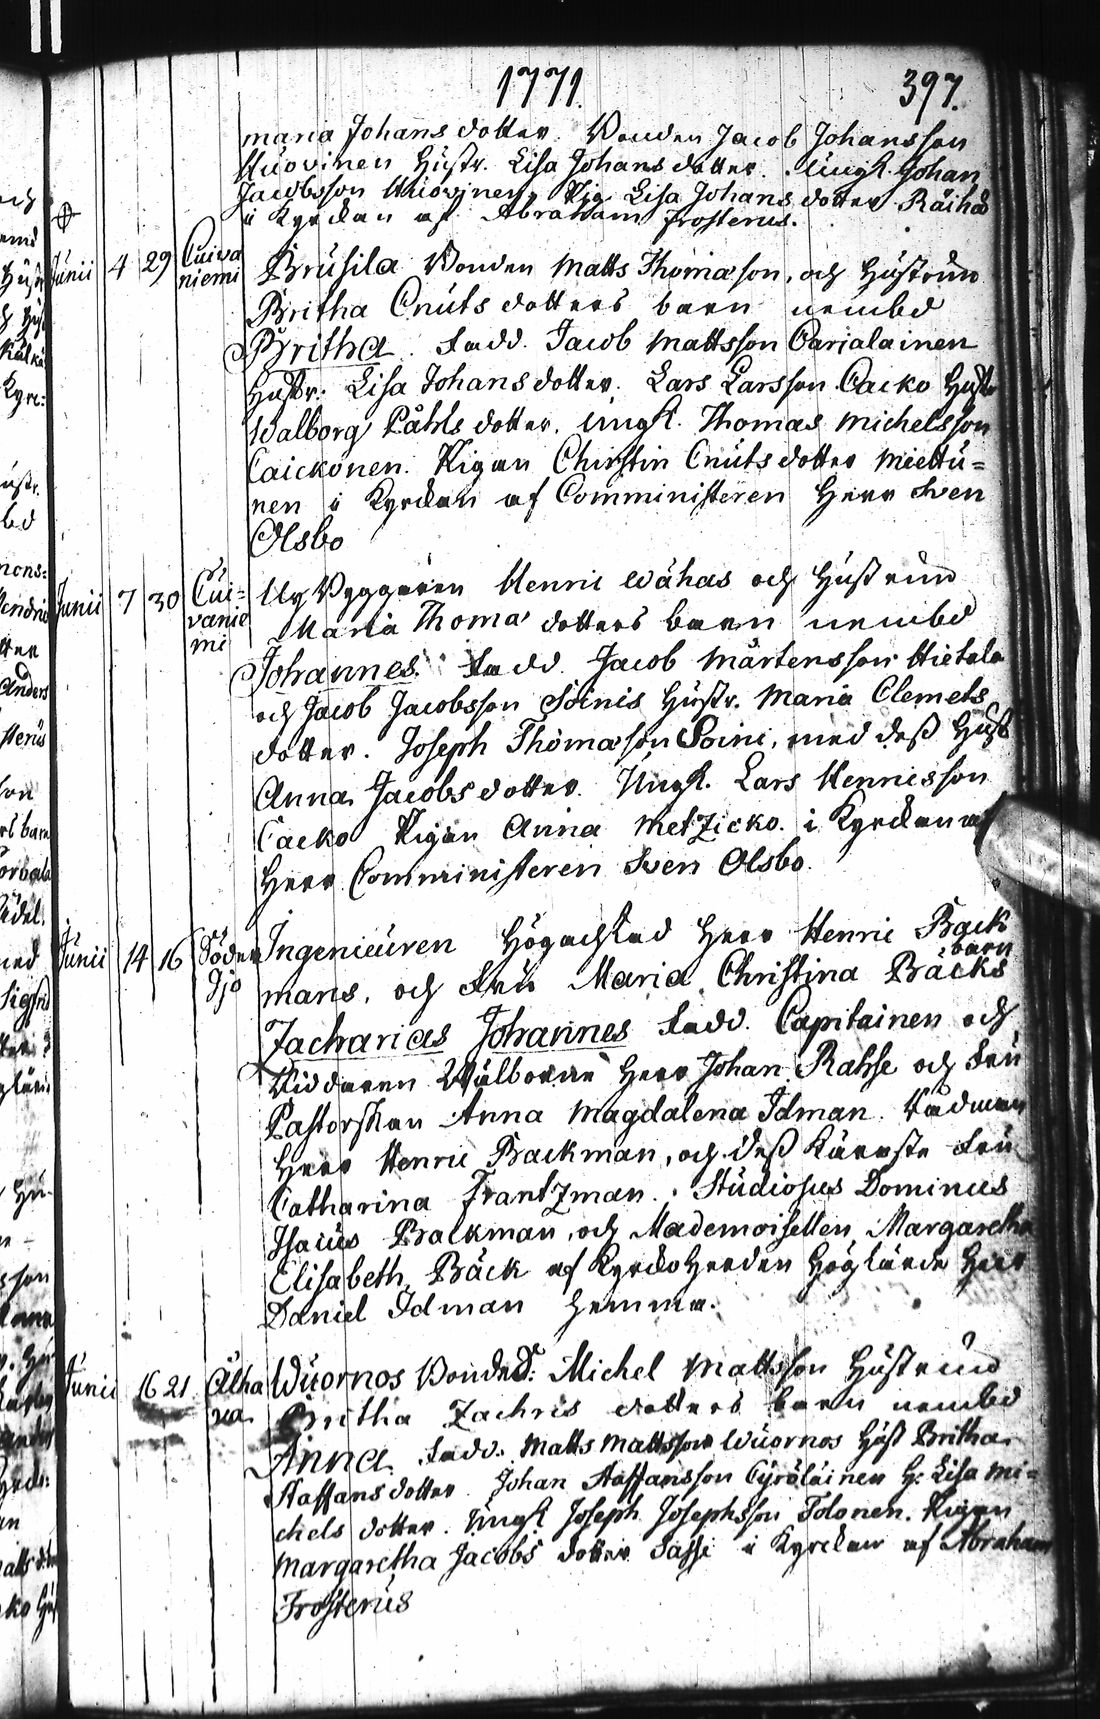 1771. 397.
maria Johans dotter. Bonden Jacob Johansson
Huovinen Hustr. Lisa Johans dotter. Ungk. Johan
Jacobsson Huovinen, Pig. Lisa Johans dotter Räihä
i Kyrckan af Abraham Frosterus.
Junii 4 29 Cuiva
niemi
Brusila Bonden Matts Thomæson, och Hustrun
Britha Cnuts dotters barn nembd
Britha. Fadd. Jacob Mattsson Carialainen
Hustr. Lisa Johans dotter. Lars Larsson Cacko Hustr
Walborg Påhls dotter. Ungk. Thomas Michelsson
Caickonen. Pigan Christin Cnuts dotter Miettu=
nen i Kyrckan af Comministeren Herr Sven
Olsbo
Junii 7 30 Cui=
vanie
mi
Ny Byggaren Henric Wähas och Hustrun
Maria Thomæ dotters barn nembd
Johannes. Fadd. Jacob Mårtensson Hietala
och Jacob Jacobsson Soinis Hustr. Maria Clemets
dotter. Joseph Thomæson Soini, med dess Hust
Anna Jacobs dotter. Ungk. Lars Henricsson
Cacko Pigan Anna Metzicko. i Kyrckan af
Herr Comministeren Sven Olsbo.
Junii 14 16 Söder
Ijo
Ingenieuren Högachtad Herr Henric Back
mans, och Fru Maria Christina Bäcks barn
Zacharias Johannes Fadd. Capitainen och
Riddaren Wälborne Herr Johan Rahse och Fru
Pastorskan Anna Magdalena Idman. Rådman
Herr Henric Backman, och dess Käreste Fru
Catharina Frantzman. Studiosus Dominus
Isacus Backman, och Mademoisellen Margaretha
Elisabeth Bäck af Kyrckoherden Höglärde Herr
Daniel Idman hemma.
Junii 16 21 Alha
Wuornos Bonden Michel Mattsson Hustrun
Britha Zachris dotters barn nembd
Anna. Fadd. Matts Mattsson Wuornos Hust Britha
Staffans dotter. Johan Staffansson Cyröläinen H: Lisa Mi=
chels dotter. Ungk Joseph Josephsson Tolonen. Pigan
Margaretha Jacobs dotter Sassi i Kyrckan af Abraham
Frosterus